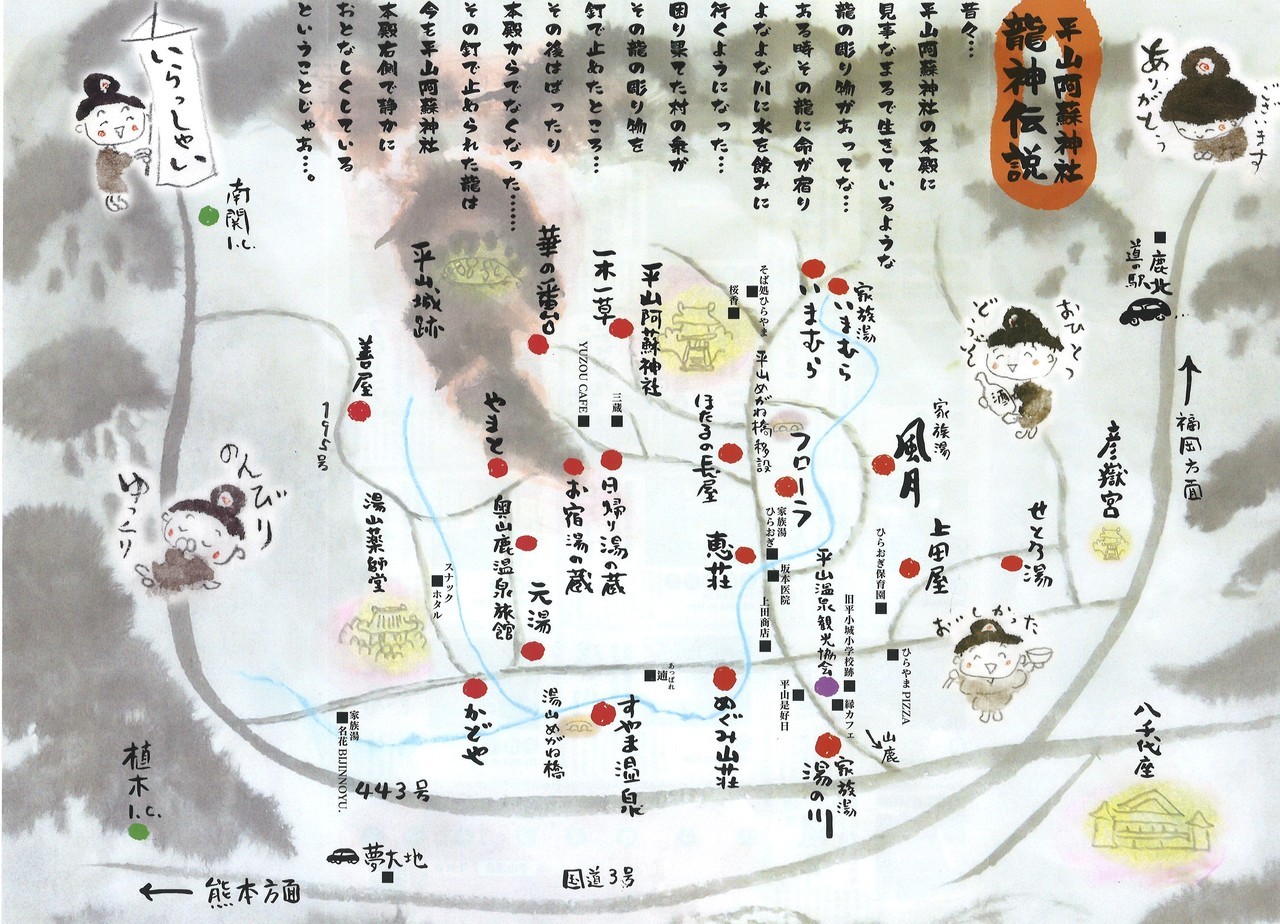 平山阿蘇神社
龍神伝説
昔々…
平山阿蘇神社の本殿に
見事なまるで生きているような
龍の彫り物があってな…
ある時その龍に命が宿り
よなよな川に水を飲みに
行くようになった…
困り果てた村の衆が
その龍の彫り物を
釘で止めたところ…
その後はばったり
本殿からでなくなった……
その釘で止められた龍は
今も平山阿蘇神社
本殿右側で静かに
おとなしくしている
ということじゃぁ…。
ありがとう
ございます
いらっしゃい
南関
I.C.
道の駅
鹿北
福岡方面
彦嶽宮
おひとつ
どうぞ
家族湯
風月
家族湯
いまむら
いまむら
そば処ひらやま
桜香
平山阿蘇神社
一木一草
華の番台
平山城跡
善屋
195号
YUZOU CAFE
三蔵
平山めがね橋移設
ほたるの長屋
フローラ
やまと
お宿湯の蔵
日帰り湯の蔵
奥山鹿温泉旅館
元湯
恵荘
家族湯
ひらおぎ
坂本医院
上田商店
平山温泉観光協会
旧平小城小学校跡
ひらおぎ保育園
上田屋
せとろ湯
おいしかった
ひらやまPIZZA
縁カフェ
平山是好日
のんびり
ゆっくり
湯山薬師堂
スナック
ホタル
あっぱれ
かどや
湯山めがね橋
すやま温泉
めぐみ山荘
家族湯
湯の川
山鹿
八千代座
家族湯
名花 BIJINNOYU.
443号
植木
I.C.
夢大地
国道3号
熊本方面
酒